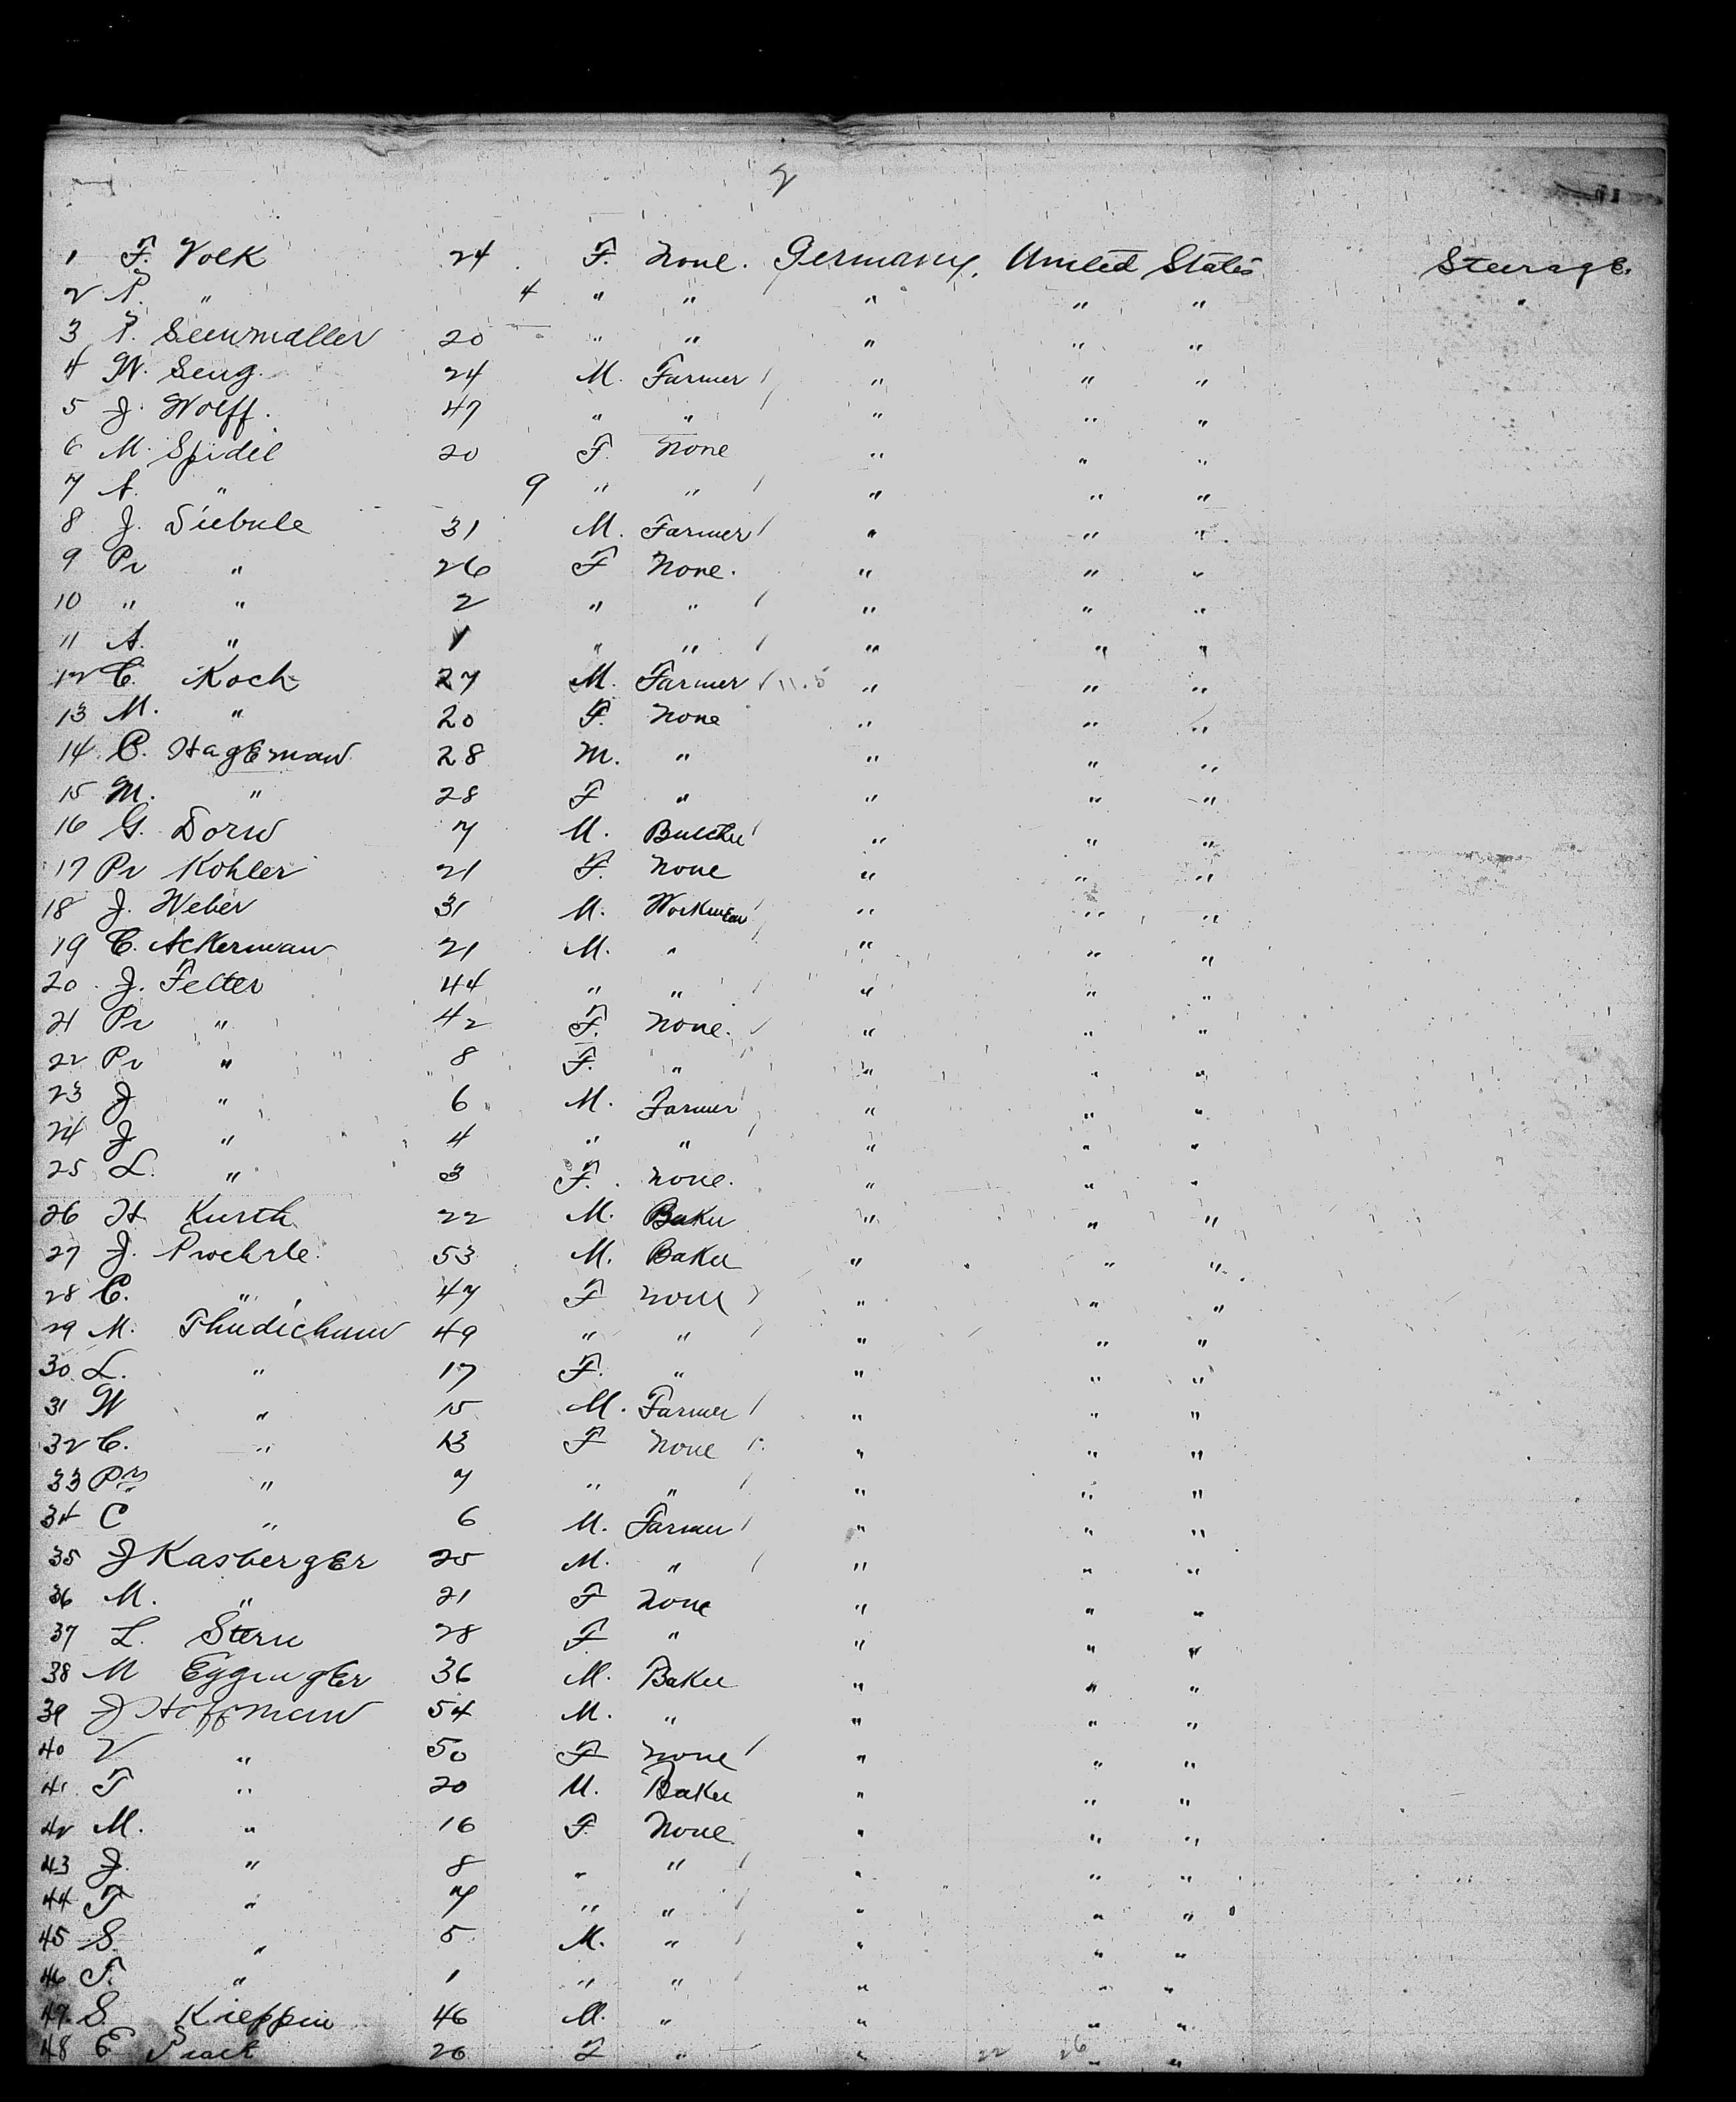 2
1 F. Volk 24 F. None. Germany. United States Steerage.
2 P. " 4 " " " " " "
3 P. 20 " " " " "
4 W. Seng. 24 M. Farmer " " "
5 J. Wolff. 47 " " " " "
6 M. Spidel 20 F. None " " "
7 A. " 9 " " " " "
8 J. 31 M. Farmer " " "
9 Pr " 26 F None. " " "
10 " " 2 " " " " "
11 A. " 1 " " " " "
12 C. Koch 27 M. Farmer " " "
13 M. " 20 F. None " " "
14 C. Hageman 28 M. " " " "
15 M. " 28 F " " " "
16 G. Dorn 7 M. Butcher " " "
17 Pr Kohler 21 F. None " " "
18 J. Weber 31 M. Workman " " "
19 C. Ackerman 21 M. " " " "
20 J. Fetter 44 " " " " "
21 Pr " 42 F. None. " " "
22 Pr " 8 F. " " " "
23 J " 6 M. Farmer " " "
24 J " 4 " " " " "
25 L. " 3 F. None. " " "
26 H Kurth 22 M. Baker " " "
27 J. 53 M. Baker " " "
28 C. " 47 F None " " "
29 M. Thudichum 49 " " " " "
30 L. " 17 F. " " " "
31 W " 15 M. Farmer " " "
32 C. " 13 F None " " "
33 Pr " 7 " " " " "
34 C " 6 M. Farmer " " "
35 J Kasberger 25 M. " " " "
36 M. " 21 F None " " "
37 L. Stern 28 F " " " "
38 M 36 M. Baker " " "
39 J Hoffman 54 M. " " " "
40 V " 50 F None " " "
41 T " 20 M. Baker " " "
42 M. " 16 F None " " "
43 J. " 8 " " " " "
44 T " 7 " " " " "
45 S. " 5 M. " " " "
46 T. " 1 " " " " "
47 S. Kieppin 46 M. " " " "
48 E 26 F " " 22 26 " "